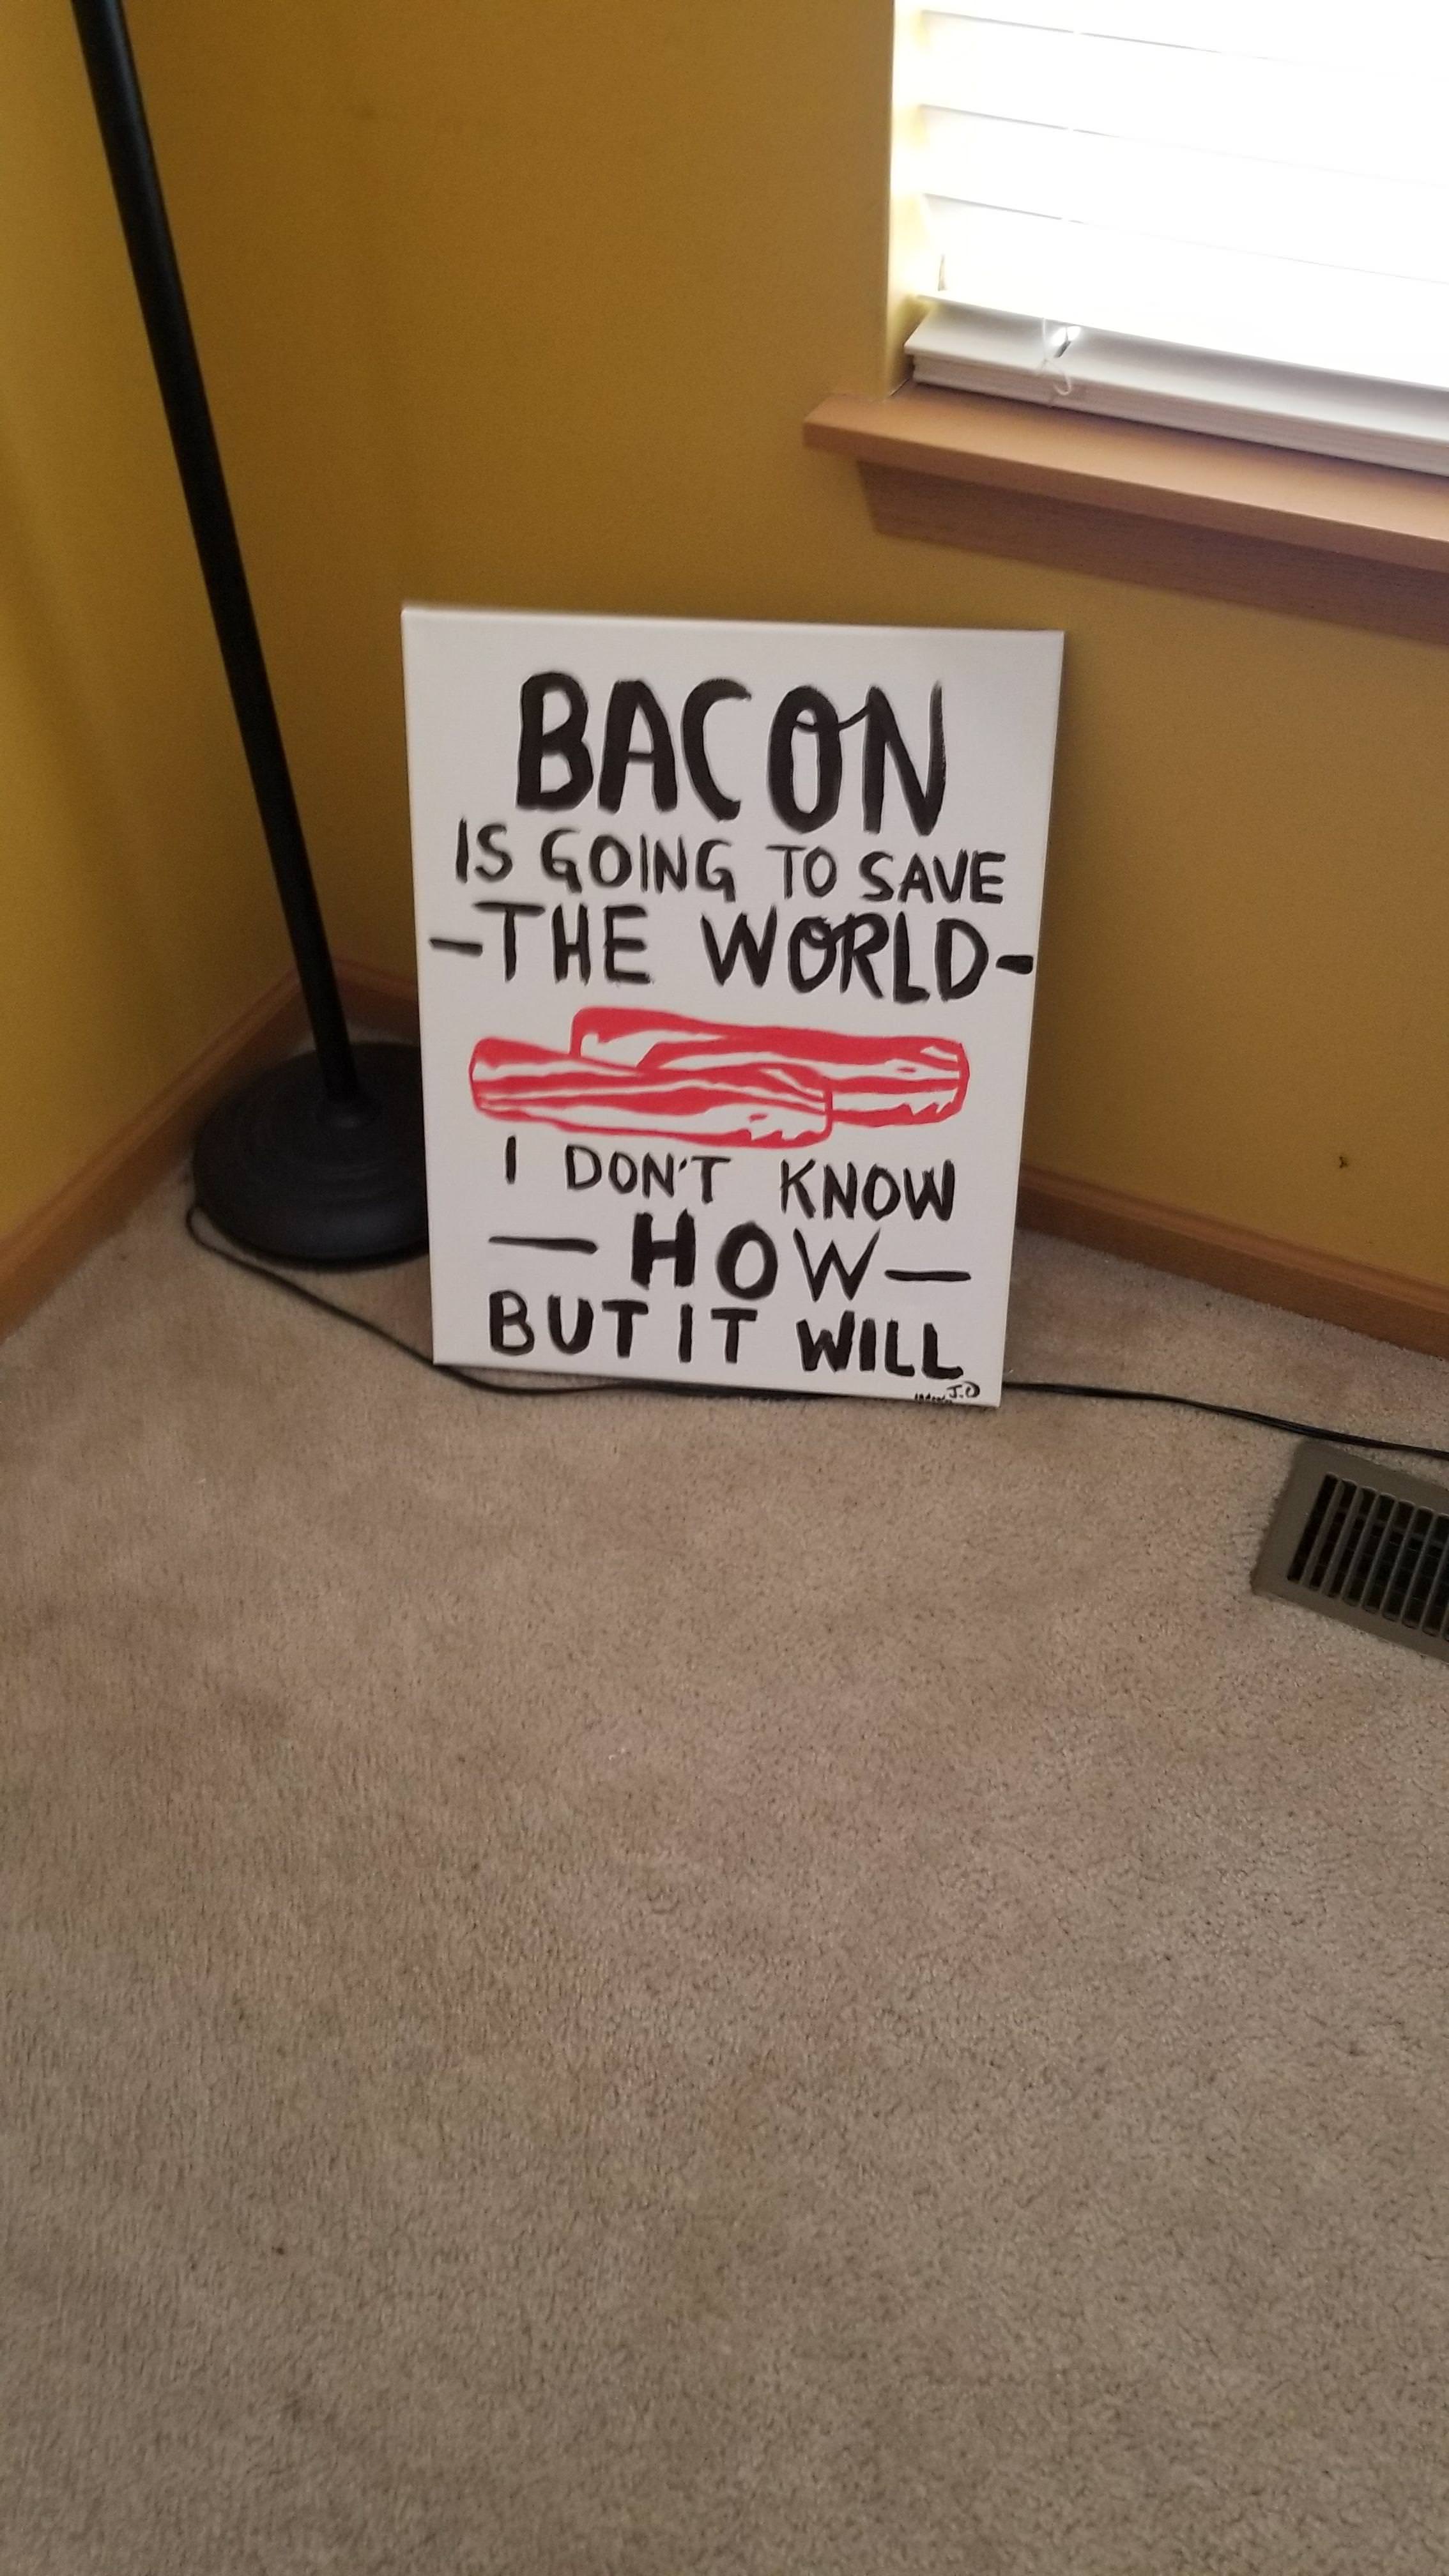 BACON
IS GOING TO SAVE
-THE WORLD-
I DON'T KNOW
— HOW —
BUT IT WILL